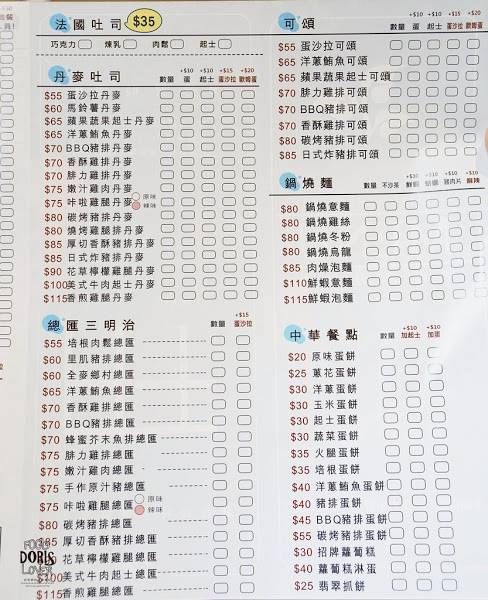 法國吐司 $35
巧克力 煉乳 肉鬆 起士
丹麥吐司 數量 +$10 蛋 +$10 起士 +$15 蛋沙拉 +$20 歐姆蛋
$55 蛋沙拉丹麥
$60 馬鈴薯丹麥
$65 蘋果蔬果起士丹麥
$65 洋蔥鮪魚丹麥
$70 BBQ豬排丹麥
$70 香酥雞排丹麥
$70 腓力雞排丹麥
$75 嫩汁雞肉丹麥
$75 咔啦雞腿丹麥 原味 辣味
$80 碳烤豬排丹麥
$80 燒烤雞腿排丹麥
$85 厚切香酥豬排丹麥
$85 日式炸豬排丹麥
$90 花草檸檬雞腿丹麥
$100 美式牛肉起士丹麥
$115 香煎雞腿丹麥
總匯三明治 數量 +$15 蛋沙拉
$55 培根肉鬆總匯
$60 里肌豬排總匯
$60 全麥鄉村總匯
$65 洋蔥鮪魚總匯
$70 香酥雞排總匯
$70 BBQ豬排總匯
$70 蜂蜜芥末魚排總匯
$75 腓力雞排總匯
$75 嫩汁雞肉總匯
$75 手作原汁豬總匯
$75 咔啦雞腿總匯 原味 辣味
$80 碳烤豬排總匯
$85 厚切香酥豬排總匯
花草檸檬雞腿總匯
$100 美式牛肉起士總匯
$115 香煎雞腿總匯
可頌 數量 +$10 蛋 +$10 起士 +$15 蛋沙拉 +$20 歐姆蛋
$55 蛋沙拉可頌
$65 洋蔥鮪魚可頌
$65 蘋果蔬果起士可頌
$70 腓力雞排可頌
$70 BBQ豬排可頌
$70 香酥雞排可頌
$80 碳烤豬排可頌
$85 日式炸豬排可頌
鍋燒麵 數量 不沙茶 +$30 鮮蝦 +$10 蛤蠣 +$10 豬肉片 +$10 麻辣
$80 鍋燒意麵
$80 鍋燒雞絲
$80 鍋燒冬粉
$80 鍋燒烏龍
$85 肉燥泡麵
$110 鮮蝦意麵
$115 鮮蝦泡麵
中華餐點 數量 +$10 加起士 +$10 加蛋
$20 原味蛋餅
$25 蔥花蛋餅
$30 洋蔥蛋餅
$30 玉米蛋餅
$30 起士蛋餅
$30 蔬菜蛋餅
$35 火腿蛋餅
$35 培根蛋餅
$40 洋蔥鮪魚蛋餅
$40 豬排蛋餅
$45 BBQ豬排蛋餅
$55 碳烤豬排蛋餅
$30 招牌蘿蔔糕
$40 蘿蔔糕淋蛋
$25 翡翠抓餅
FOOD
DORIS
LOVER